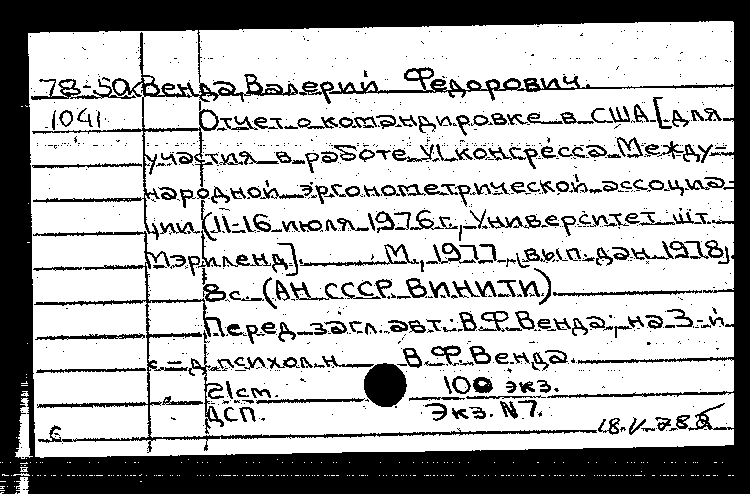 78-50к Венда, Валерий Федорович.
1041 Отчет о командировке в США [для
участия в работе VI конгресса Между-
народной эргонометрической ассоциа-
ции (11-16 июля 1976 г., Университет шт.
Мэриленд]. М., 1977, [вып. дан. 1978].
8с. (АН СССР. ВИНИТИ)
Перед загл. авт.: В.Ф. Венда; на 3-й
с. - д. психол. н. В.Ф. Венда.
21см. 100 экз.
ДСП. Экз. N7.
6 18.V.78